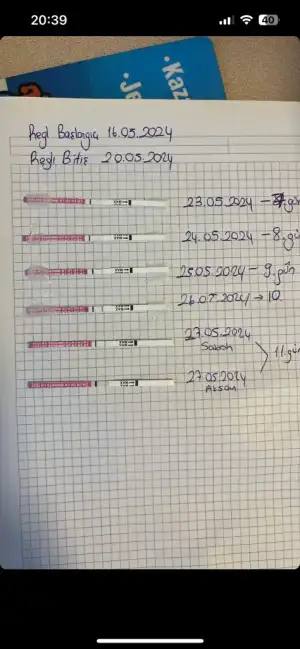 20:39
40
Kaz
Je
Regl Başlangıç 16.05.2024
Regl Bitiş 20.05.2024
23.05.2024 - 7.gün
24.05.2024 - 8.gün
25.05.2024 - 9.gün
26.07.2024 → 10
27.05.2024
Sabah
11.gün
27.05.2024
Akşam